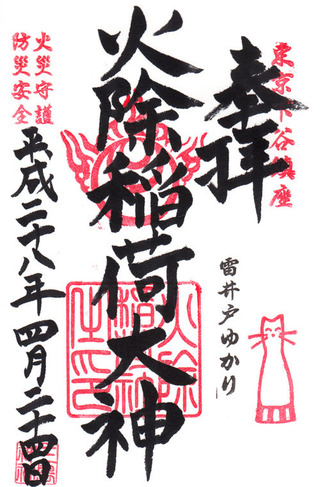 東京下谷鎮座
奉拝
雷井戸ゆかり
火除稲荷大神
火災守護
防災安全
平成二十八年四月二十四日